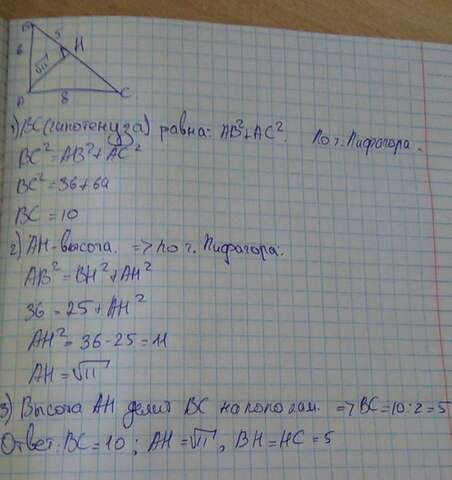 B 5
H
6
√11
A 8 C
1) BC (гипотенуза) равна: AB²+AC². По т. Пифагора.
BC² = AB²+AC²
BC² = 36+64
BC = 10
2) AH - высота. => по т. Пифагора:
AB² = BH²+AH²
36 = 25+AH²
AH² = 36-25=11
AH = √11
3) Высота AH делит BC напополам. => BC=10:2=5
Ответ: BC=10; AH=√11, BH=HC=5